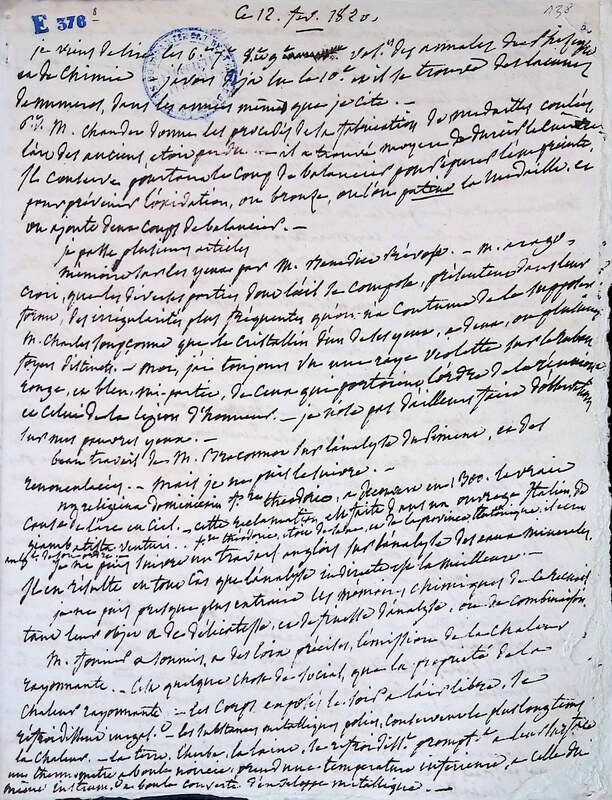 E 376 8
ce 12. fev. 1820.
138
je viens de lire les 6e 7e 8e 9e vol. des annales de Physique
et de Chimie j'avois déjà lu le 10e où il se trouve des lacunes
de numeros, dans les années même que je cite. —
M. Chaudet donne les procédés de la fabrication de medailles coulées,
l'art des anciens étoit perdu — il a trouvé moyen de durcir le cuivre
Il conserve pourtant le coup de balancier pour épurer l'empreinte,
pour prévenir l'oxidation, on bronze, ou l'on patine la medaille, et
on ajoute deux coups de balancier. —
je passe plusieurs articles
memoire sur les yeux par M. Benedict Prévost. — M. arago
croit, que les diverses parties dont l'œil se compose, présentent dans leur
forme, des irrégularités plus fréquentes qu'on n'a coutume de le supposer
M. Charles soupconne que le cristallin d'un de ses yeux, a deux, ou plusieurs
foyers distincts. — moi, j'ai toujours vu une raye violette sur le ruban
rouge, et bleu, mi-partie, de ceux qui portoient l'ordre de la réunion
et celui de la legion d'honneur. — je n'ose pas d'ailleurs faire d'observations
sur mes pauvres yeux. —
beau travail de M. Braconnot sur l'analyse du Piment, et des
renonculacées. — mais je ne puis le suivre. —
un religieux dominicain theodoric, a decouvert en 1300. la vraie
cause de l'arc en ciel. — cette reclamation est faite dans un ouvrage Italien, de
giambatista venturi. — theodoric, étoit de Saxe, et de la province
je ne puis suivre un travail anglois sur l'analyse des eaux minerales,
Il en résulte en tout cas que l'analyse indirecte est la meilleure. —
je ne puis presque plus entrevoir les memoires chimiques de la
tant leur objet a de délicatesse, et de finesse d'analyse, ou de combinaison.
M. fourier a soumis, a des loix précises, l'émission de la chaleur
rayonnante. — Cela quelque chose de social, que la propriété de la
chaleur rayonnante. — Les corps exposés le soir a l'air libre, se
refroidissent inégal.t Les substances métalliques polies, conservent le plus longtems
la chaleur. — la terre, l'herbe, la laine, se refroidiss.t prompt.t
un thermometre a boule noircie, prend une température inférieure, a celle du
même instrum. de boule couverte d'enveloppe métallique. —